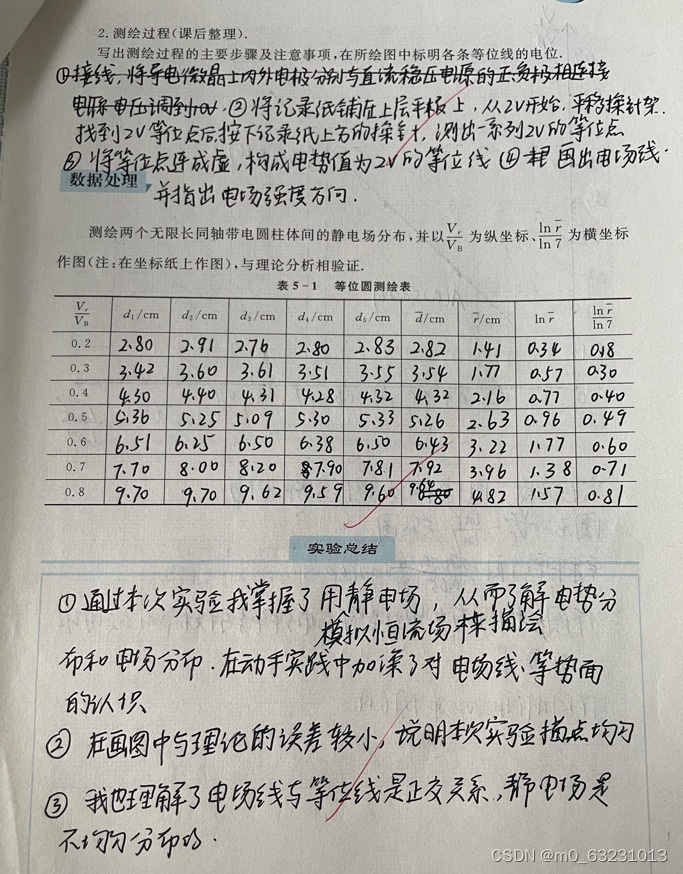 2. 测绘过程(课后整理).
写出测绘过程的主要步骤及注意事项,在所绘图中标明各条等位线的电位.
①接线,将导电微晶上内外电极分别与直流稳压电源的正负极相连接
电源电压调到10V.②将记录纸铺在上层平板上,从2V开始,平移探针架.
找到2V等位点后,按下记录纸上方的探针,测出一系列2V的等位点
③将等位点连成虚,构成电势值为2V的等位线④ 画出电场线.
并指出电场强度方向.
数据处理
测绘两个无限长同轴带电圆柱体间的静电场分布,并以 Vr/VB 为纵坐标、ln r̄/ln 7 为横坐标
作图(注:在坐标纸上作图),与理论分析相验证.
表 5-1 等位圆测绘表
Vr/VB d₁/cm d₂/cm d₃/cm d₄/cm d₅/cm d̄/cm r̄/cm ln r̄ ln r̄/ln 7
0.2 2.80 2.91 2.76 2.80 2.83 2.82 1.41 0.34 0.18
0.3 3.42 3.60 3.61 3.51 3.55 3.54 1.77 0.57 0.30
0.4 4.30 4.40 4.31 4.28 4.32 4.32 2.16 0.77 0.40
0.5 5.36 5.25 5.09 5.30 5.33 5.26 2.63 0.96 0.49
0.6 6.51 6.25 6.50 6.38 6.50 6.43 3.22 1.77 0.60
0.7 7.70 8.00 8.20 7.90 7.81 7.92 3.96 1.38 0.71
0.8 9.70 9.70 9.62 9.59 9.60 9.64 4.82 1.57 0.81
实验总结
①通过本次实验我掌握了用静电场,从而了解电势分
模拟恒流场来描绘
布和电场分布.在动手实践中加深了对电场线、等势面
的认识
② 在画图中与理论的误差较小,说明本次实验描点均匀
③ 我也理解了电场线与等位线是正交关系,静电场是
不均匀分布的.
CSDN @m0_63231013